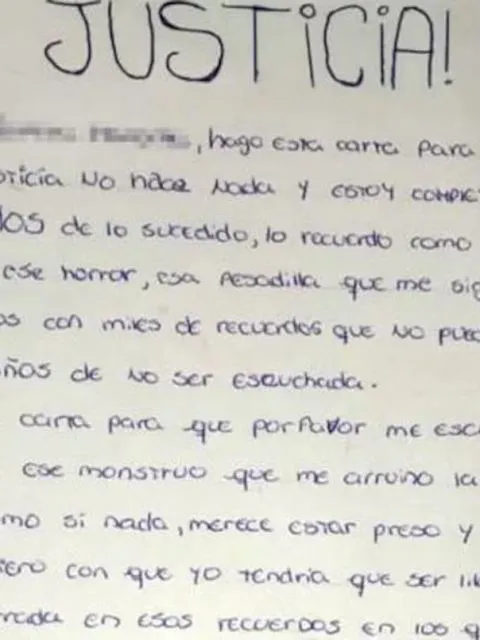 JUSTICIA!
, hago esta carta para
sticia no hace nada y estoy complet
os de lo sucedido, lo recuerdo como
ese horror, esa pesadilla que me sig
os con miles de recuerdos que no pued
ños de no ser escuchada.
carta para que porfavor me esc
ese monstruo que me arruino la
mo si nada, merece estar preso y
iero con que yo tendria que ser lib
rada en esos recuerdos en los q